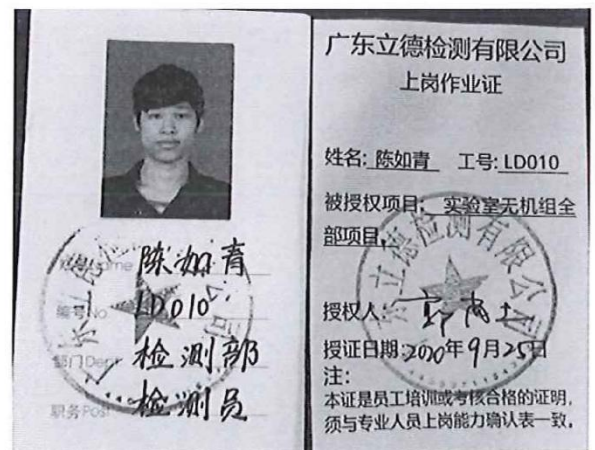 姓名Name 陈如青
编号No LD010
部门Dept 检测部
职务Post 检测员
广东立德检测有限公司
上岗作业证
姓名: 陈如青 工号: LD010
被授权项目: 实验室无机组全
部项目
授权人:
授证日期: 2020年9月25日
注:
本证是员工培训或考核合格的证明,
须与专业人员上岗能力确认表一致。
广东立德检测有限公司